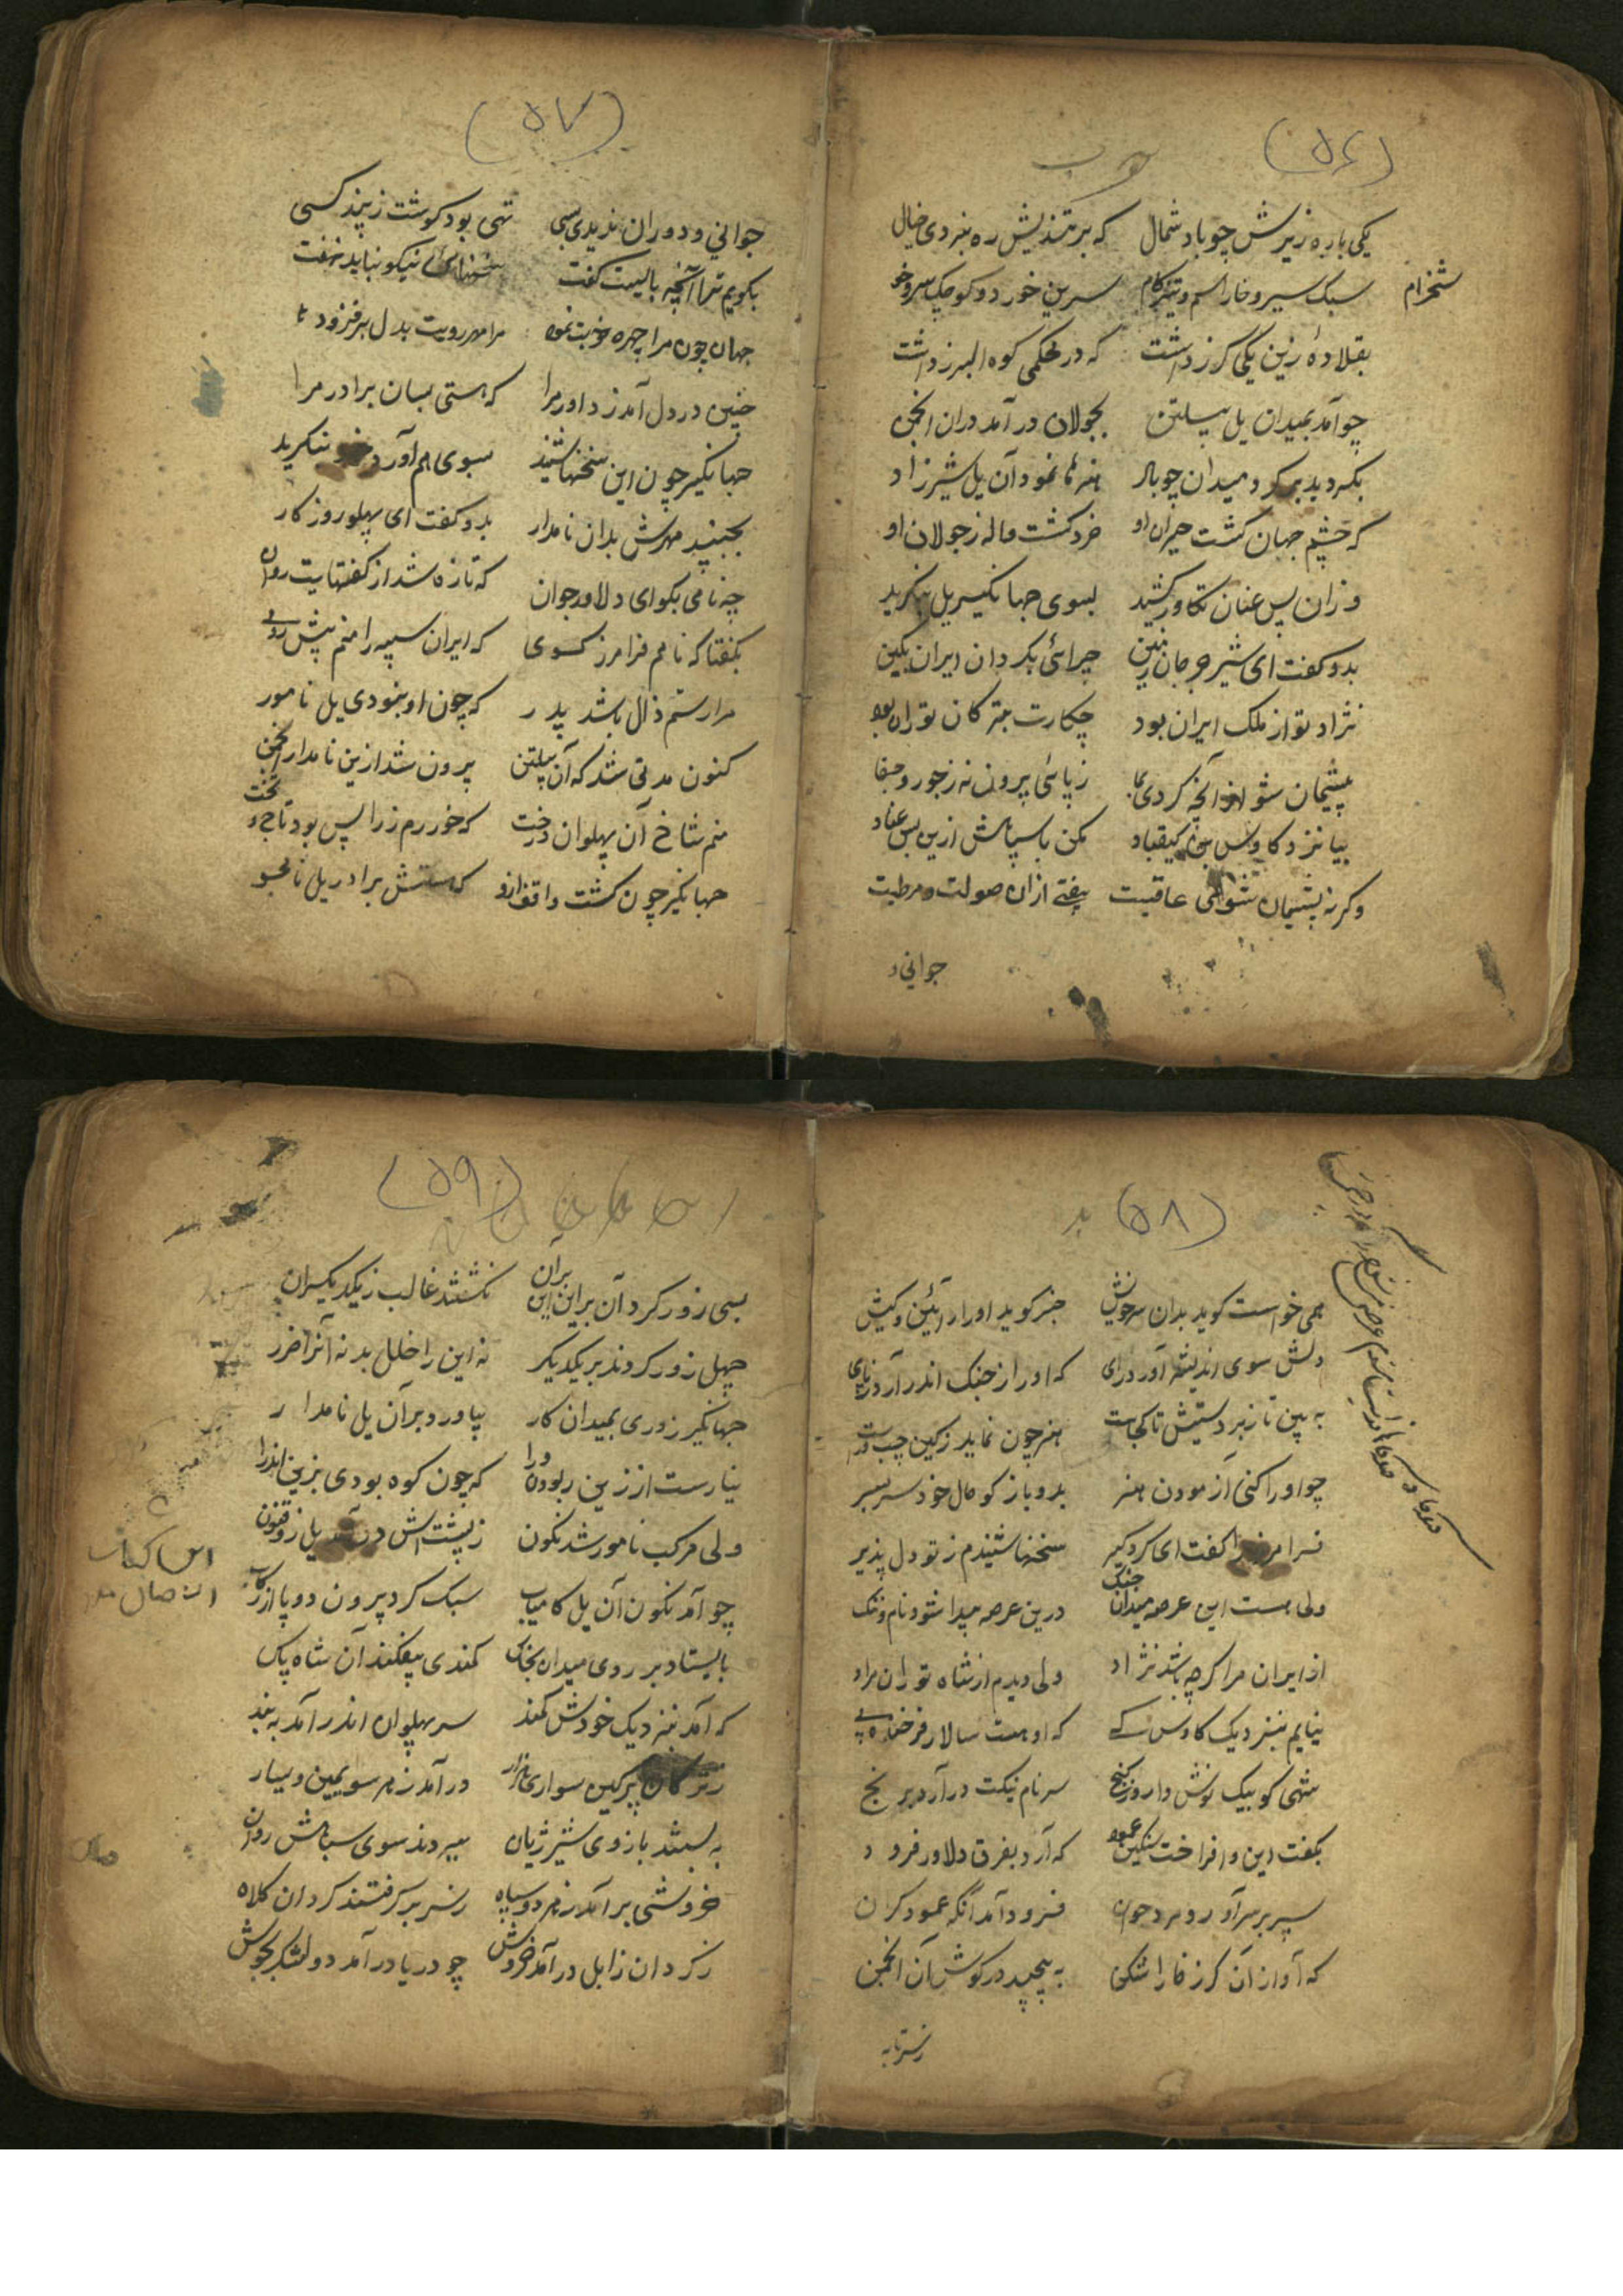 (۵۶)
یکی باره زیرش چو باد شمال که بر تندیش ره نبردی خیال
سبک سیر و خارا سم و تیز کام سرین خورد و کوچک سر و خوشخرام
بقلادۀ زین یکی کرز داشت که در محکمی کوه البرز داشت
چو آمد بمیدان یل پیلتن بجولان در آمد دران انجمن
بکردید بر کرد میدان چو باد هنرها نمود آن یل شیرزاد
که چشم جهان کشت حیران او خرد کشت واله ز جولان او
وزان پس عنان تکاور کشید بسوی جهانکیر یل بنکرید
بدو کفت ای شیر جرجان زمین چرائی بکردان ایران بکین
نژاد تو از ملک ایران بود چکارت بترکان توران بود
پشیمان شو از آنچه کردی بما ز پا نی بیرون نه ز جور و جفا
بیا نزد کاوس کیقباد مکن با سپاهش ازین بس عناد
وکرنه پشیمان شوی عاقبت بیفتی ازان صولت و مرطبت
جوانی و
(۵۷)
جوانی و دوران ندیدی بسی تهی بود کوشت ز پند کسی
بکویم ترا آنچه بایست کفت سخنهای نیکو نباید نهفت
جهان چون مرا چهره خوبت نمود مرا مهر رویت بدل برفزود
چنین در دل آمد ز داور مرا که هستی بسان برادر مرا
جهانکیر چون این سخنها شنید بسوی هم آورد خود بنکرید
بجنبید مهرش بدان نامدار بدو کفت ای پهلو روزکار
چه نامی بکو ای دلاور جوان که تازه شد از کفتهایت روان
بکفتا که نامم فرامرز کوی که ایران سپه را منم پیش روی
مرا رستم زال باشد پدر که چون او نبودی یل نامور
کنون مدتی شد که آن پیلتن برون شد ازین نامدار انجمن
منم شاخ آن پهلوان درخت که خور رم زراپس بود تاج و تخت
جهانکیر چون کشت واقف ازو که هستش برادر یل نامجو
(۵۸)
همی خواست کوید بدان سرخوش خبر کوید او را ز آئین و کیش
دلش سوی اندیشه آورد رای که او را ز جنک اندر آرد ز پای
به بین تا زبردستیش تا کجاست هنر چون نماید ز کین چپ و راست
چو او را کنی آزمودن هنر بدو باز کو حال خود سربسر
فرامرز را کفت ای کردکیر سخنها شنیدم ز تو دل پذیر
ولی هست این عرصه میدان جنک درین عرصه پیدا شود نام و ننک
از ایران مرا کرچه باشد نژاد ولی دیدم از شاه توران مراد
نیایم بنزدیک کاوس کی که او هست سالار فرخنده پی
شهی کو بیک نوش دارو ز کنج سر نام نیکت درآرد برنج
بکفت این و افراخت سنکین عمود که آرد بفرق دلاور فرود
سپر بر سر آورد مرد جوان فرود آمد آنکه عمود کران
که آواز آن کرز خارا شکن به پیچید در کوش آن انجمن
(۵۹)
بسی زور کرد آن برین این بر آن نکشتند غالب ز یکدیکران
چهل زور کردند بر یکدیکر نه این را خلل بد نه آنرا ضرر
جهانکیر زوری بمیدان کار بیاورد بر آن یل نامدار
نیارست از زین ربودن ورا که چون کوه بودی بزین اندرا
ولی مرکب نامور شد نکون ز پشتش درآمد یل زوفنون
چو آمد نکون آن یل کامیاب سبک کرد بیرون دو پا از رکاب
بایستاد بر روی میدان بخاک کمندی بیفکند آن شاه پاک
که آمد بنزدیک خودش کمند سر پهلوان اندر آمد به بند
ز ترکان پرکین سواری هزار درآمد ز هر سو یمین و یسار
به بستند بازوی شیر ژیان ببردند سوی سپاهش روان
خروشی برآمد ز هر دو سپاه ز سر برکرفتند کردان کلاه
ز کردان زابل درآمد خروش چو دریا درآمد دو لشکر بجوش
این کتاب